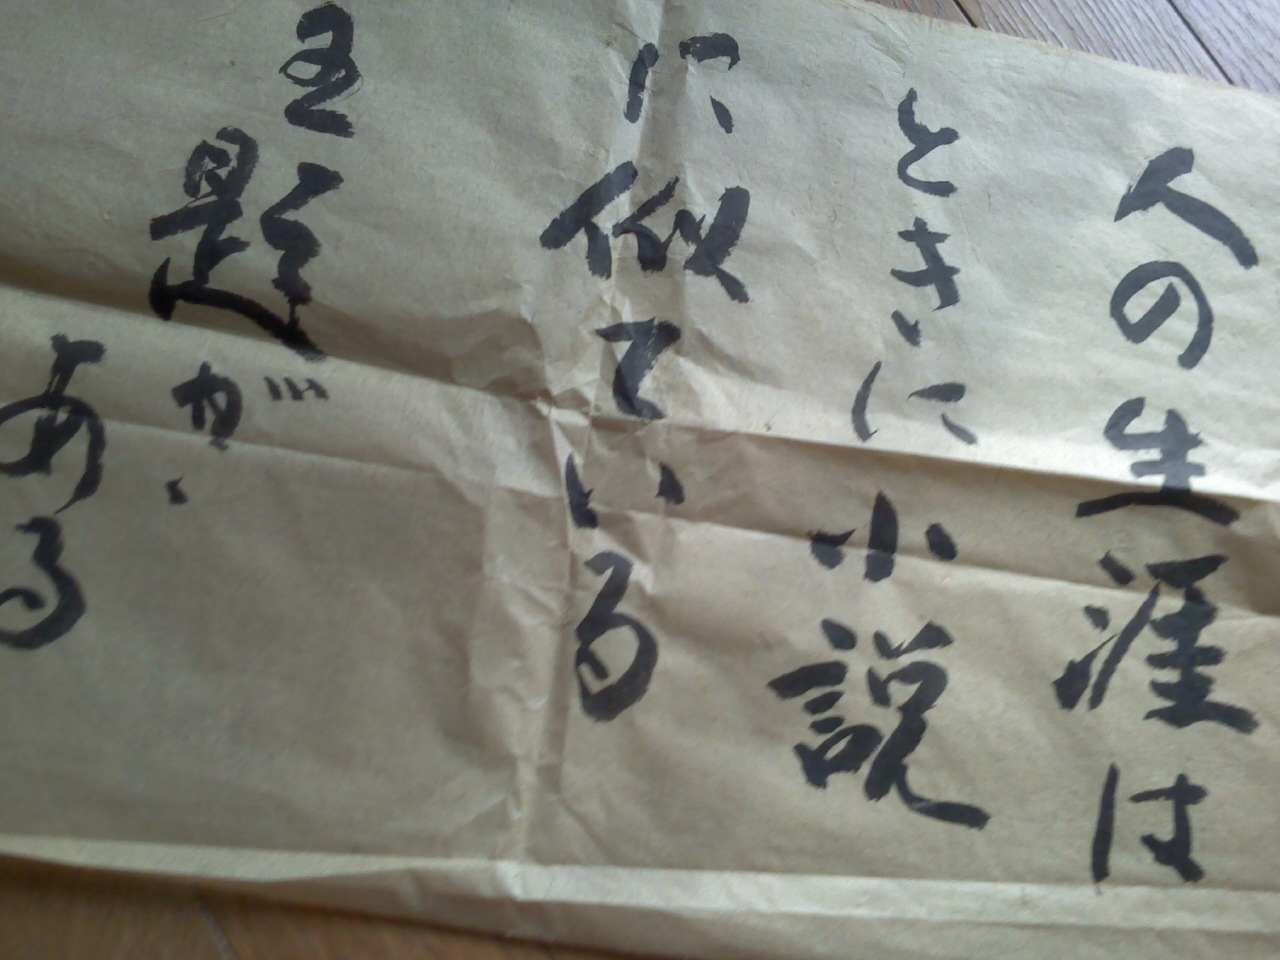 人の生涯は
ときに小説
に似ている
主題が
ある